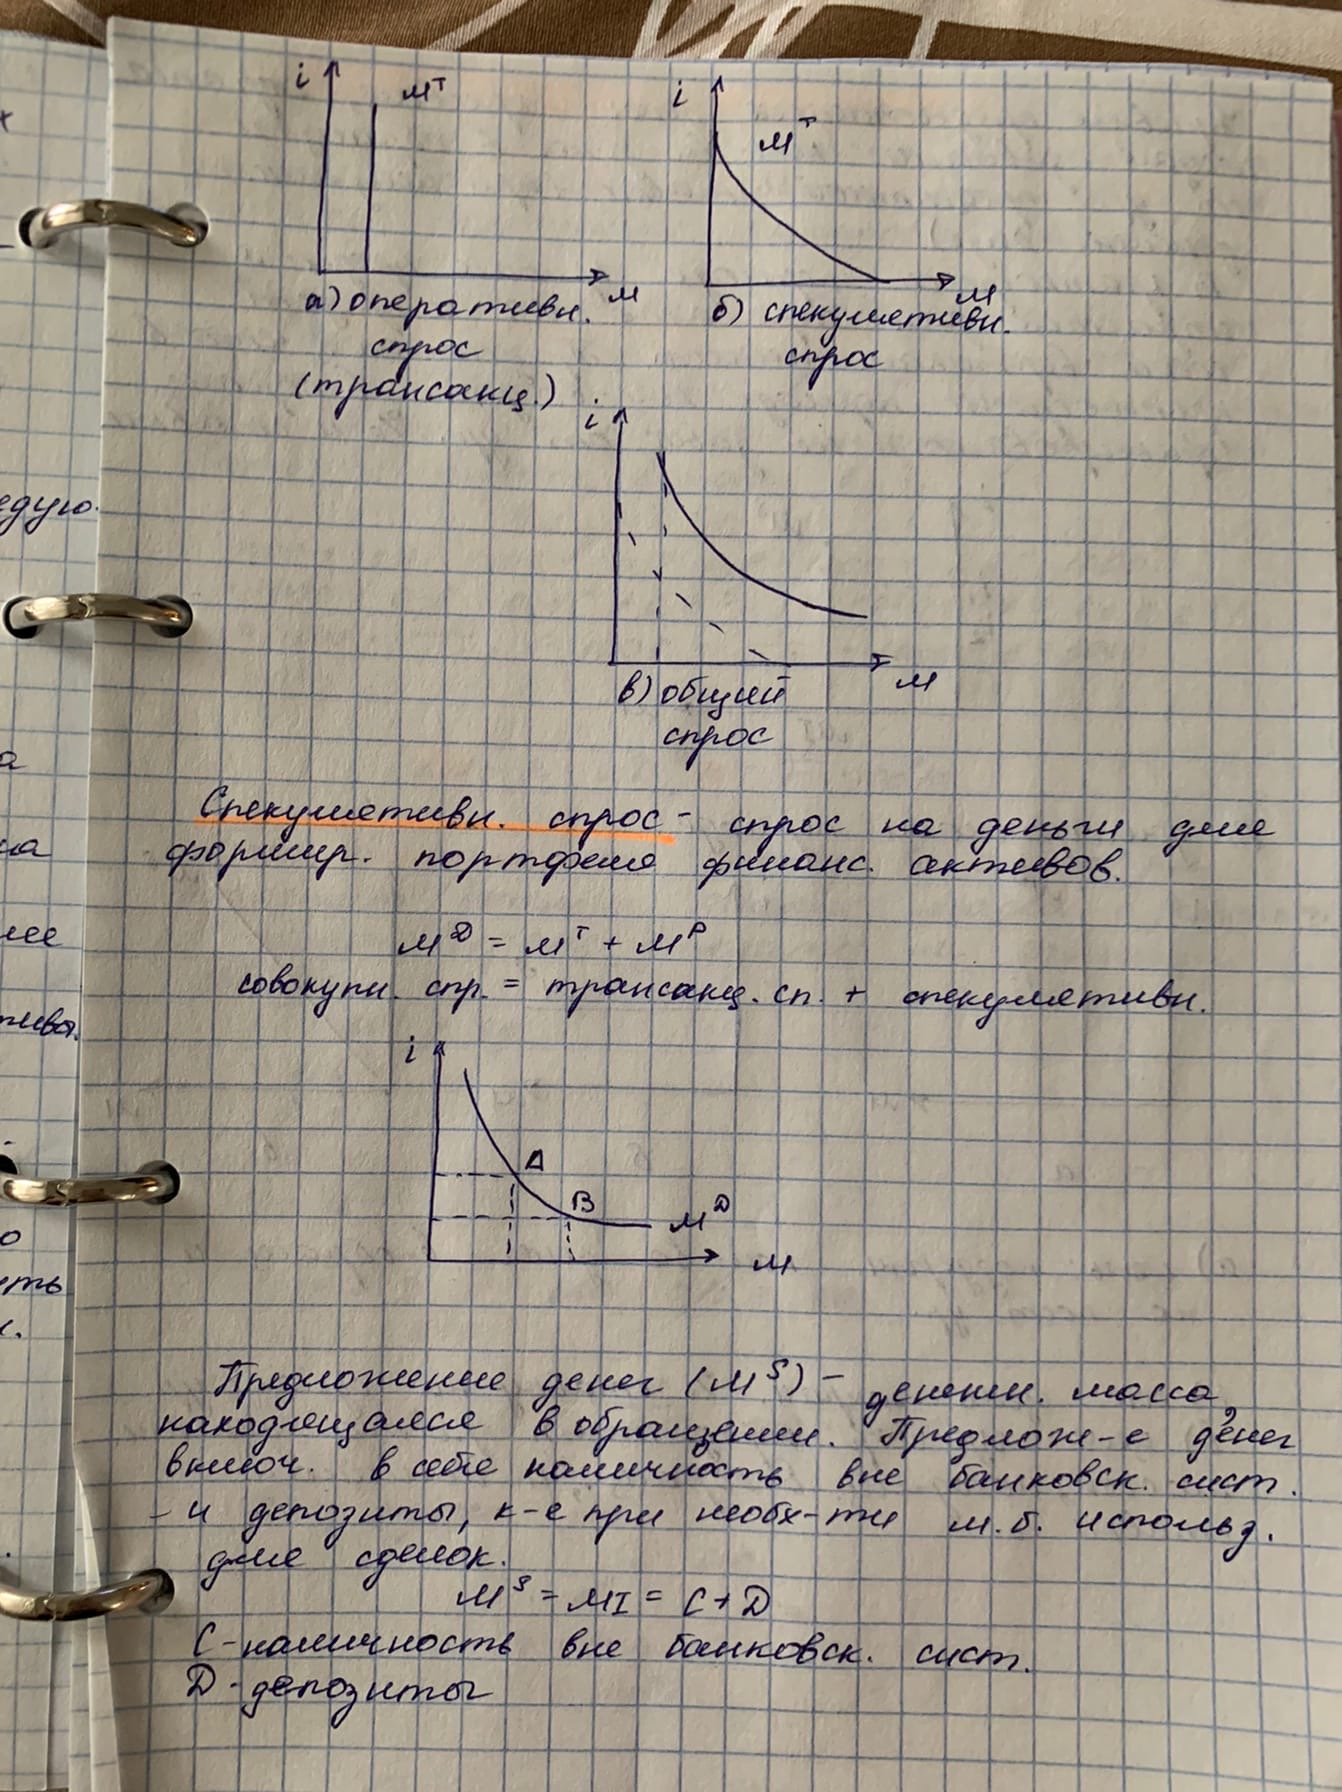 i
Mᵀ
M
а) оперативн.
спрос
(трансакц.)
i
Mᵀ
M
б) спекулятивн.
спрос
i
M
в) общий
спрос
Спекулятивн. спрос - спрос на деньги для
формир. портфеля финанс. активов.
Mᴰ = Mᵀ + Mᴾ
совокупн. спр. = трансакц. сп. + спекулятивн.
i
A
B
Mᴰ
M
Предложение денег (Mˢ) - денежн. масса,
находящаяся в обращении. Предлож-е денег
включ. в себя наличность вне банковск. сист.
и депозиты, к-е при необх-ти м.б. использ.
для сделок.
Mˢ = MI = C + D
C - наличность вне банковск. сист.
D - депозиты
едую.
а
ла
лее
тива.
о
ить